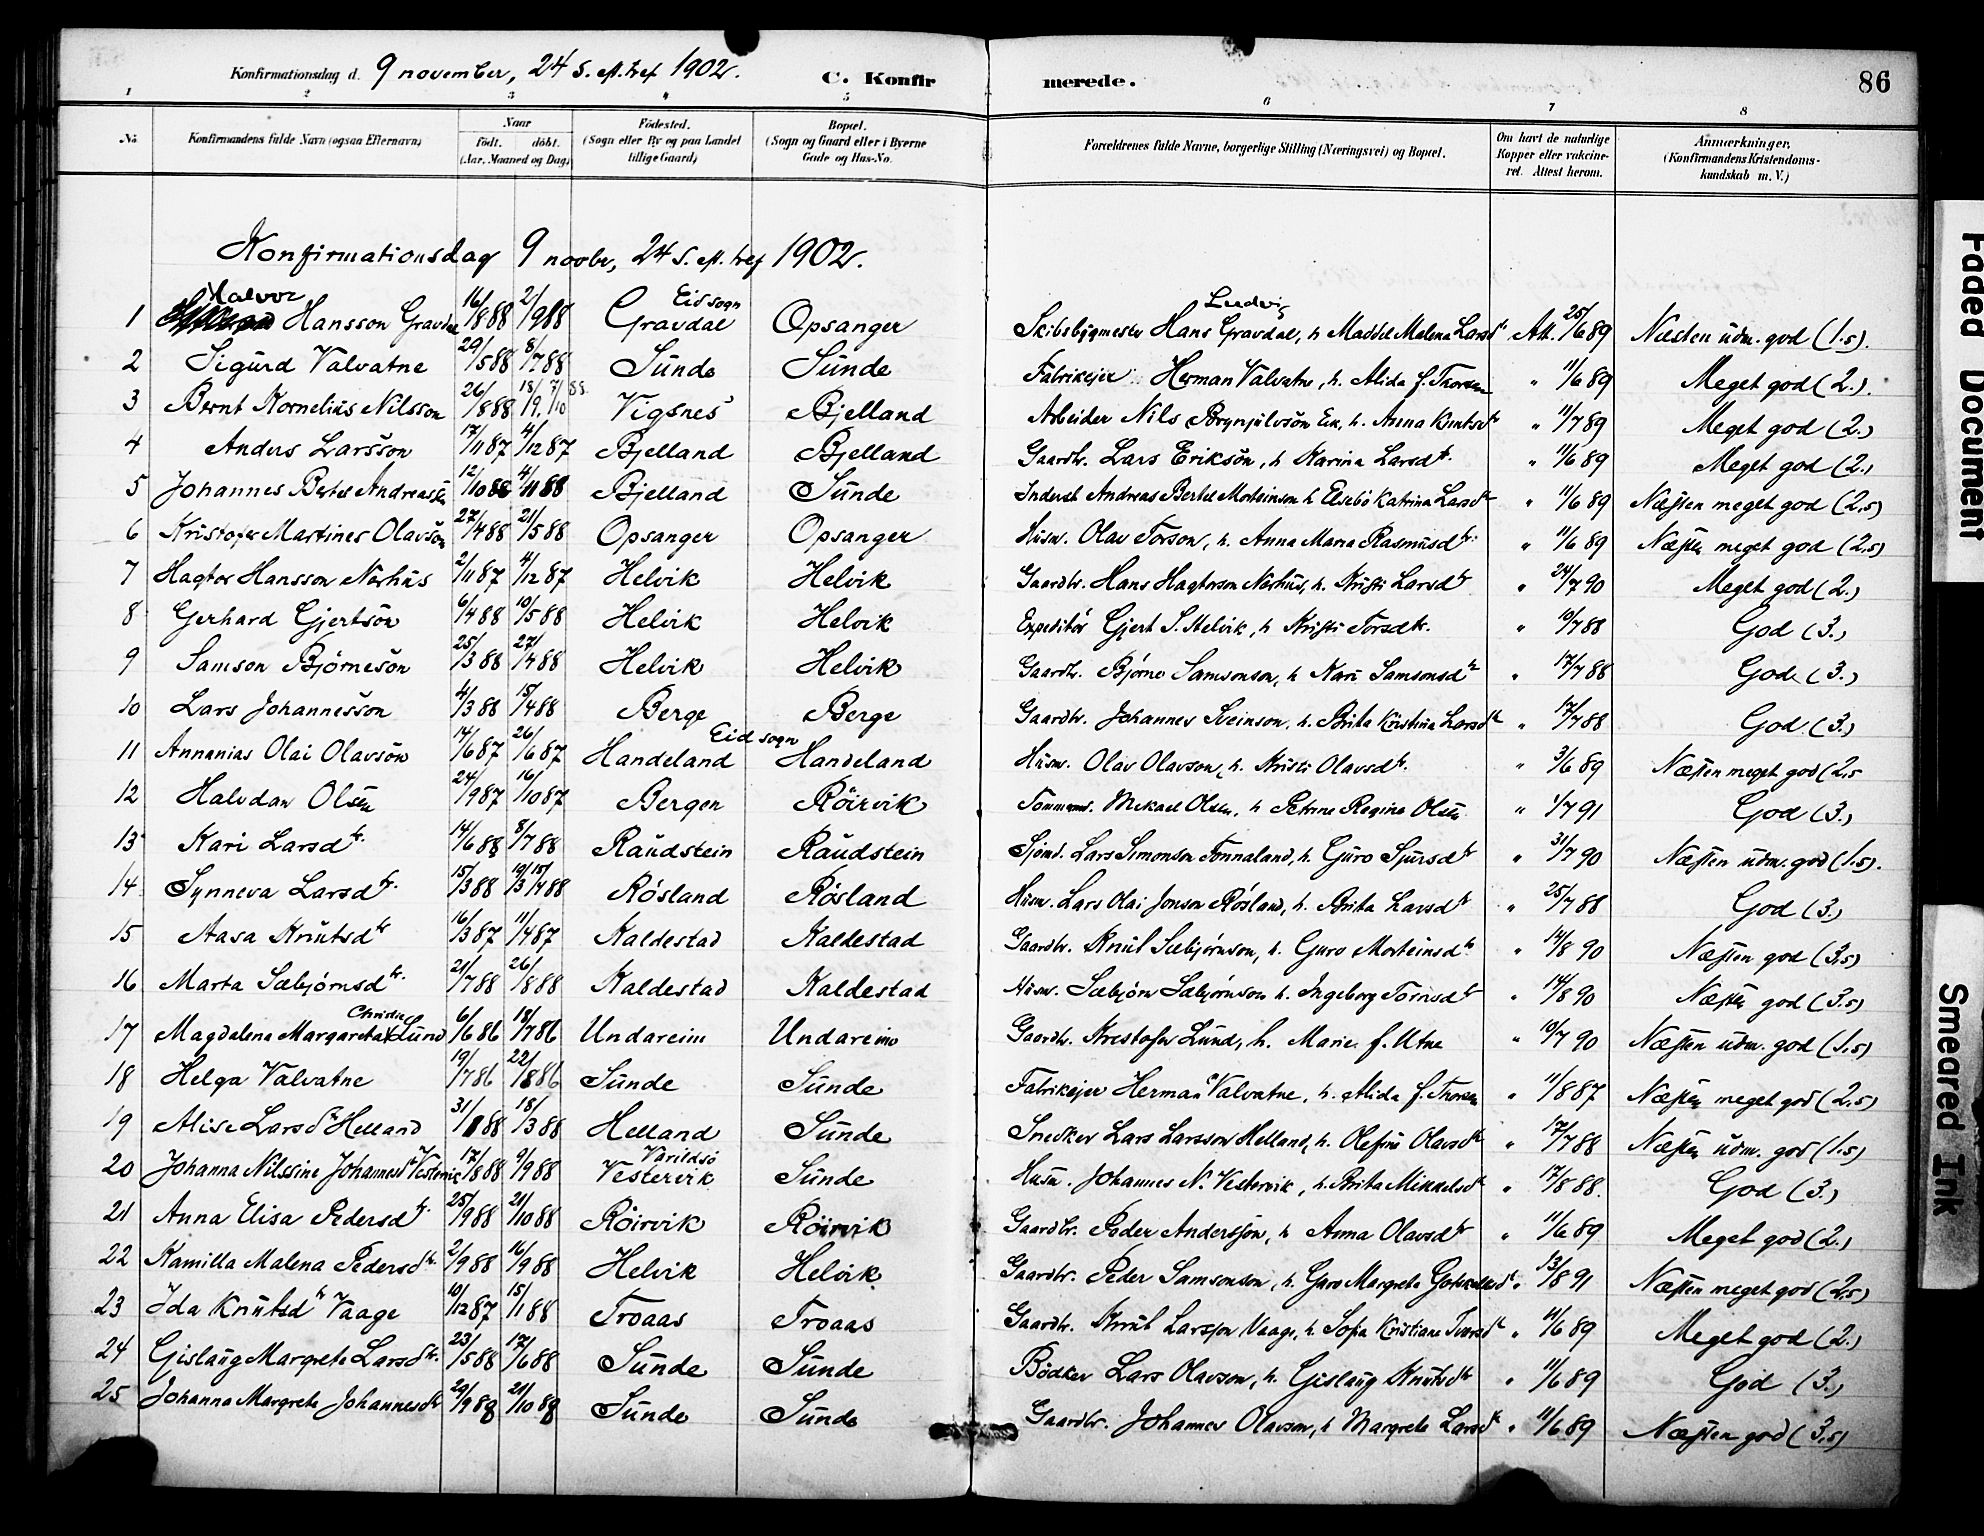 Konfirmationsdag d. 9 november, 24 S. eft. tref 1902.
C. Konfir merede. 86
1 2 3 4 5 6 7 8
No Konfirmandens fulde Navn (ogsaa Efternavn) Naar födt. döbt. (Aar, Maaned og Dag) Födested. (Sogn eller By og paa Landet tillige Gaard) Bopæl. (Sogn og Gaard eller i Byerne Gade og Hus-No. Forældrenes fulde Navne, borgerlige Stilling (Næringsvei) og Bopæl. Om havt de naturlige Kopper eller vakcineret. Attest herom. Anmærkninger, (Konfirmandens Kristendomskundskab m. V.)
Konfirmationsdag 9 novbr, 24 S. eft. tref 1902.
1 Halvor Hansson Gravdal 16/888 2/988 Gravdal Eid sogn Opsanger Skibsbygmester Hans Ludvig Gravdal, h Malena Larsdtr Att. 25/689 Næsten udm. god (1.5).
2 Sigurd Valvatne 29/588 8/788 Sunde Sunde Fabrikejer Herman Valvatne, h. Alida f. Thorsen " 11/689 Meget god (2.).
3 Bernt Kornelius Nilsson 26/888 18/9. 7/10 88. Vigsnes Bjelland Arbeider Nils Brynjulvson Eik, h. Anna Knutsdtr " 11/789 Meget god (2.)
4 Anders Larsson 17/1187 4/1287 Bjelland Bjelland Gaardbr. Lars Erikson, h Karina Larsdtr. " 11/689 Meget god (2.)
5 Johannes Bertel Andreassen 12/1088 4/1188 Bjelland Sunde Inderst Andreas Bertel Morteinson h Elsebe Katrina Larsdtr " 11/689 Næsten meget god (2,5)
6 Kristofer Martines Olavson 27/488 21/588 Opsanger Opsanger Husm. Olav Torson, h. Anna Maria Rasmusdtr. " 11/689 Næsten meget god (2,5)
7 Hagtor Hansson Nerhus 2/1187 4/1287 Helvik Helvik Gaardbr. Hans Hagtorson Nerhus, h. Kristi Larsdtr " 24/790 Meget god (2.)
8 Gerhard Gjertson 6/488 10/588 Helvik Helvik Expeditör Gjert S. Helvik, h Kristi Torsdtr. " 10/788 God (3.)
9 Samson Bjørneson 25/388 27/488 Helvik Helvik Gaardbr. Bjørne Samsonson, h Kari Samsonsdtr " 17/788 God (3.)
10 Lars Johannesson 4/388 15/488 Berge Berge Gaardbr. Johannes Sveinson, h. Brita Kristina Larsdtr " 17/788 God (3.)
11 Annanias Olai Olavson 14/687 26/687 Handeland Eid sogn Handeland Husm. Olav Olavson, h. Kristi Olavsdtr. " 3/689 Næsten meget god (2,5
12 Halvdan Olsen 24/987 16/1087 Bergen Röirvik Tömmerm. Mikael Olsen, h Petrine Regine Olsen " 1/791 God (3.)
13 Kari Larsdtr. 14/688 8/788 Raudstein Raudstein Sjömd. Lars Simonson Tonnaland, h. Guro Sjursdtr " 31/790 Næsten udm. god (1.5).
14 Synneva Larsdtr. 15/388 19/3 15/488 Rösland Rösland Husm. Lars Olai Jonson Rösland, h. Brita Larsdtr " 25/788 God (3.)
15 Aasa Knutsdtr 16/387 11/487 Kaldestad Kaldestad Gaardbr. Knut Sæbjørnson, h. Guro Morteinsdtr " 14/890 Næsten god (3,5)
16 Marta Sæbjørnsdtr. 21/788 26/888 Kaldestad Kaldestad Husm. Sæbjørn Sæbjørnson h. Ingeborg Tornsdtr " 14/890 Næsten god (3.5)
17 Magdalena Margareta Christie Lund 6/686 18/786 Undareim Undareim Gaardbr. Kristofer Lund, h. Marie f. Utne " 10/790 Næsten udm. god (1.5)
18 Helga Valvatne 19/786 22/886 Sunde Sunde Fabrikejer Herman Valvatne, h. Alida f. Thorsen " 11/887 Næsten meget god (2,5)
19 Alise Larsdtr Helland 31/188 18/388 Helland Sunde Snedker Lars Larsson Helland, h. Olefine Olavsdtr " 17/788 Næsten udm. god (1.5)
20 Johanna Nilssine Johannesdtr Vestervik 17/888 9/988 Vestervik Varildsö Sunde Husm. Johannes N. Vestervik, h. Brita Mikkelsdtr " 17/888. God (3.)
21 Anna Elisa Pedersdtr. 25/988 21/1088 Röirvik Röirvik Gaardbr. Peder Andersson, h Anna Olavsdtr " 11/689 Meget god (2.)
22 Kamilla Malena Pedersdtr. 2/988 16/988 Helvik Helvik Gaardbr. Peder Samsonson, h. Guro Margreta Gotskalksdtr " 13/891 Næsten meget god (2,5)
23 Ida Knutsdtr Vaage 10/1287 15/188 Troaas Troaas Gaardbr. Knut Larsson Vaage, h. Sofia Kristiane Iversdtr " 11/689 Meget god (2.)
24 Gislaug Margrete Larsdtr. 23/588 17/688 Sunde Sunde Bödker Lars Olavson, h. Gislaug Knutsdtr " 11/689 God (3.)
25 Johanna Margrete Johannesdtr 29/988 21/1088 Sunde Sunde Gaardbr. Johannes Olavson, h Margrete Larsdtr " 11/689 Næsten god (3,5)
Faded Document
Smeared Ink